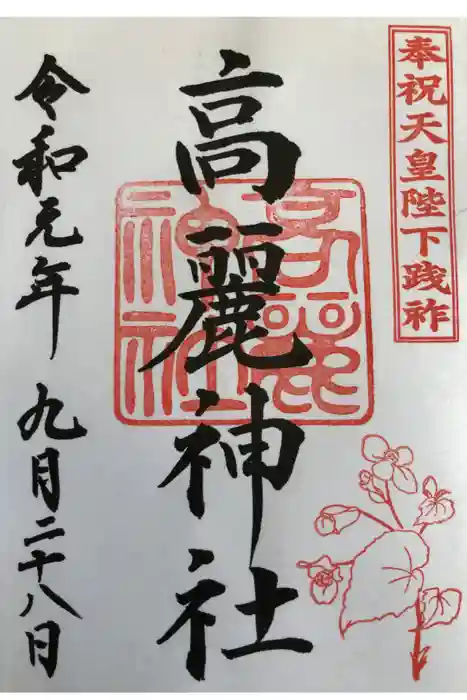 奉祝天皇陛下践祚
高麗神社
高麗
神社
令和元年 九月二十八日